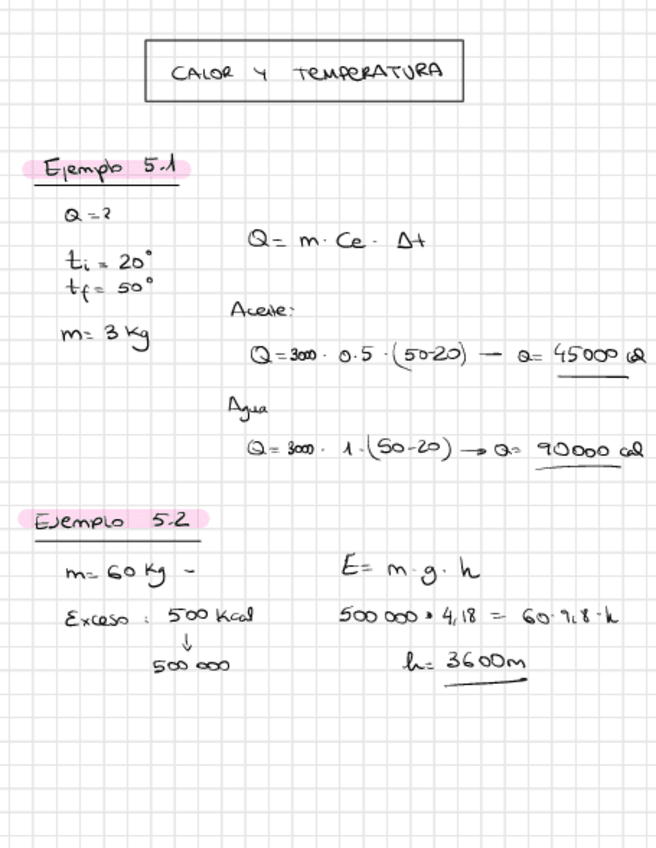 CALOR Y TEMPERATURA
Ejemplo 5.1
Q = ?
ti = 20°
tf = 50°
m = 3 kg
Q = m · Ce · Δt
Aceite:
Q = 3000 · 0.5 · (50-20) — Q = 45000 cal
Agua
Q = 3000 · 1 · (50-20) → Q = 90000 cal
Ejemplo 5.2
m = 60 Kg -
Exceso : 500 Kcal
↓
500 000
E = m · g · h
500 000 · 4,18 = 60 · 9,8 · h
h = 3600m